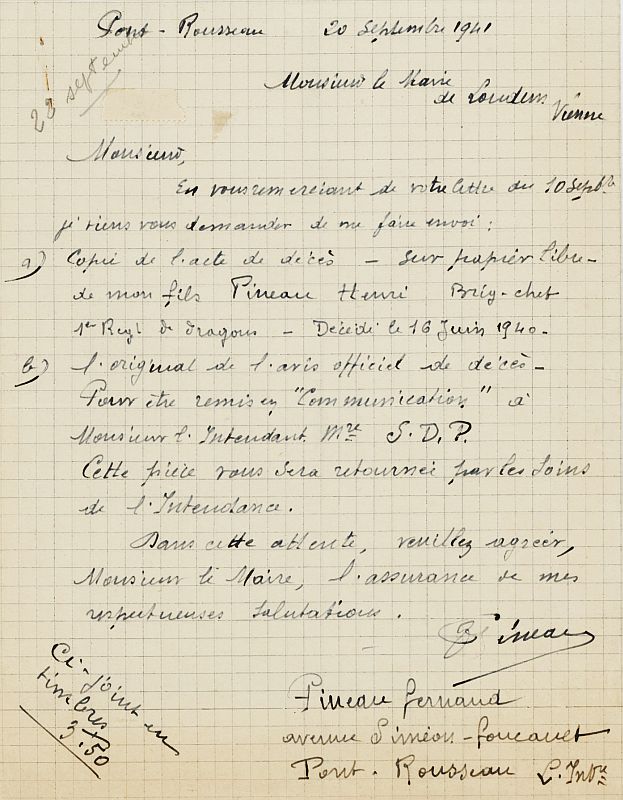 Pont-Rousseau 20 Septembre 1941
23 septembre
Monsieur le Maire
de Loudun
Vienne
Monsieur,
En vous remerciant de votre lettre du 10 Septbre
je viens vous demander de me faire envoi :
a) Copie de l'acte de décès — sur papier libre —
de mon fils Pineau Henri Brig-chef
1er Regt de dragons — Décédé le 16 Juin 1940 -
b) l'original de l'avis officiel de décès —
Pour être remis en "Communication" à
Monsieur l'Intendant Mre S.D.P.
Cette pièce vous sera retournée par les soins
de l'Intendance.
Dans cette attente, veuillez agréer,
Monsieur le Maire, l'assurance de mes
respectueuses salutations.
Pineau
Ci-joint en
timbres
3.50
Pineau Fernand
avenue Siméon-Foucault
Pont-Rousseau L. Infre